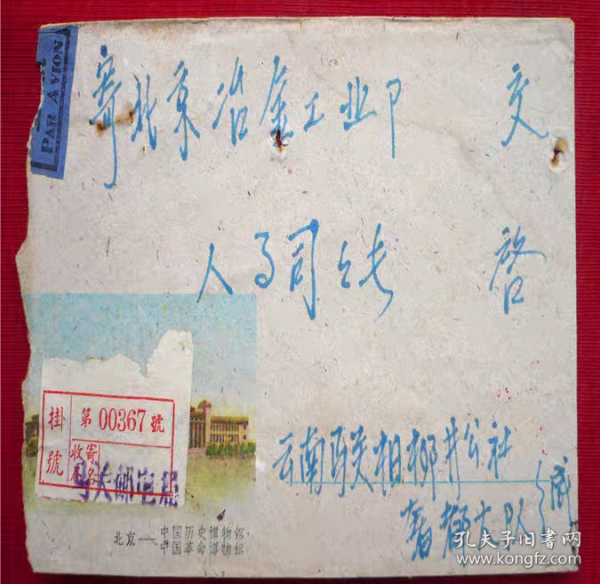 PAR AVION
寄北京冶金工业卩 交
人事司 启
掛號
第 00367 號
收寄
局名
邮电局
云南 柳井公社
大队 缄
北京——中国历史博物馆
中国革命博物馆
孔夫子旧书网
www.kongfz.com